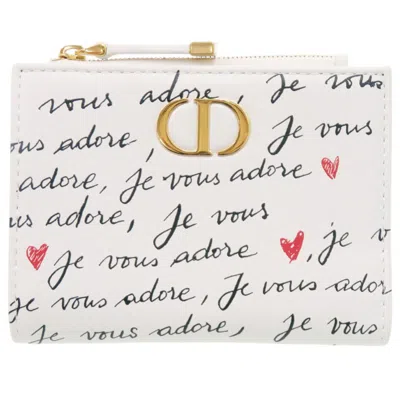 vous adore, Je vous
CD
us adore, Je vous
adore, Je vous adore
us adore, Je vous
Je vous adore, je v
je vous adore, Je vous ador
Je vous adore, Je vous